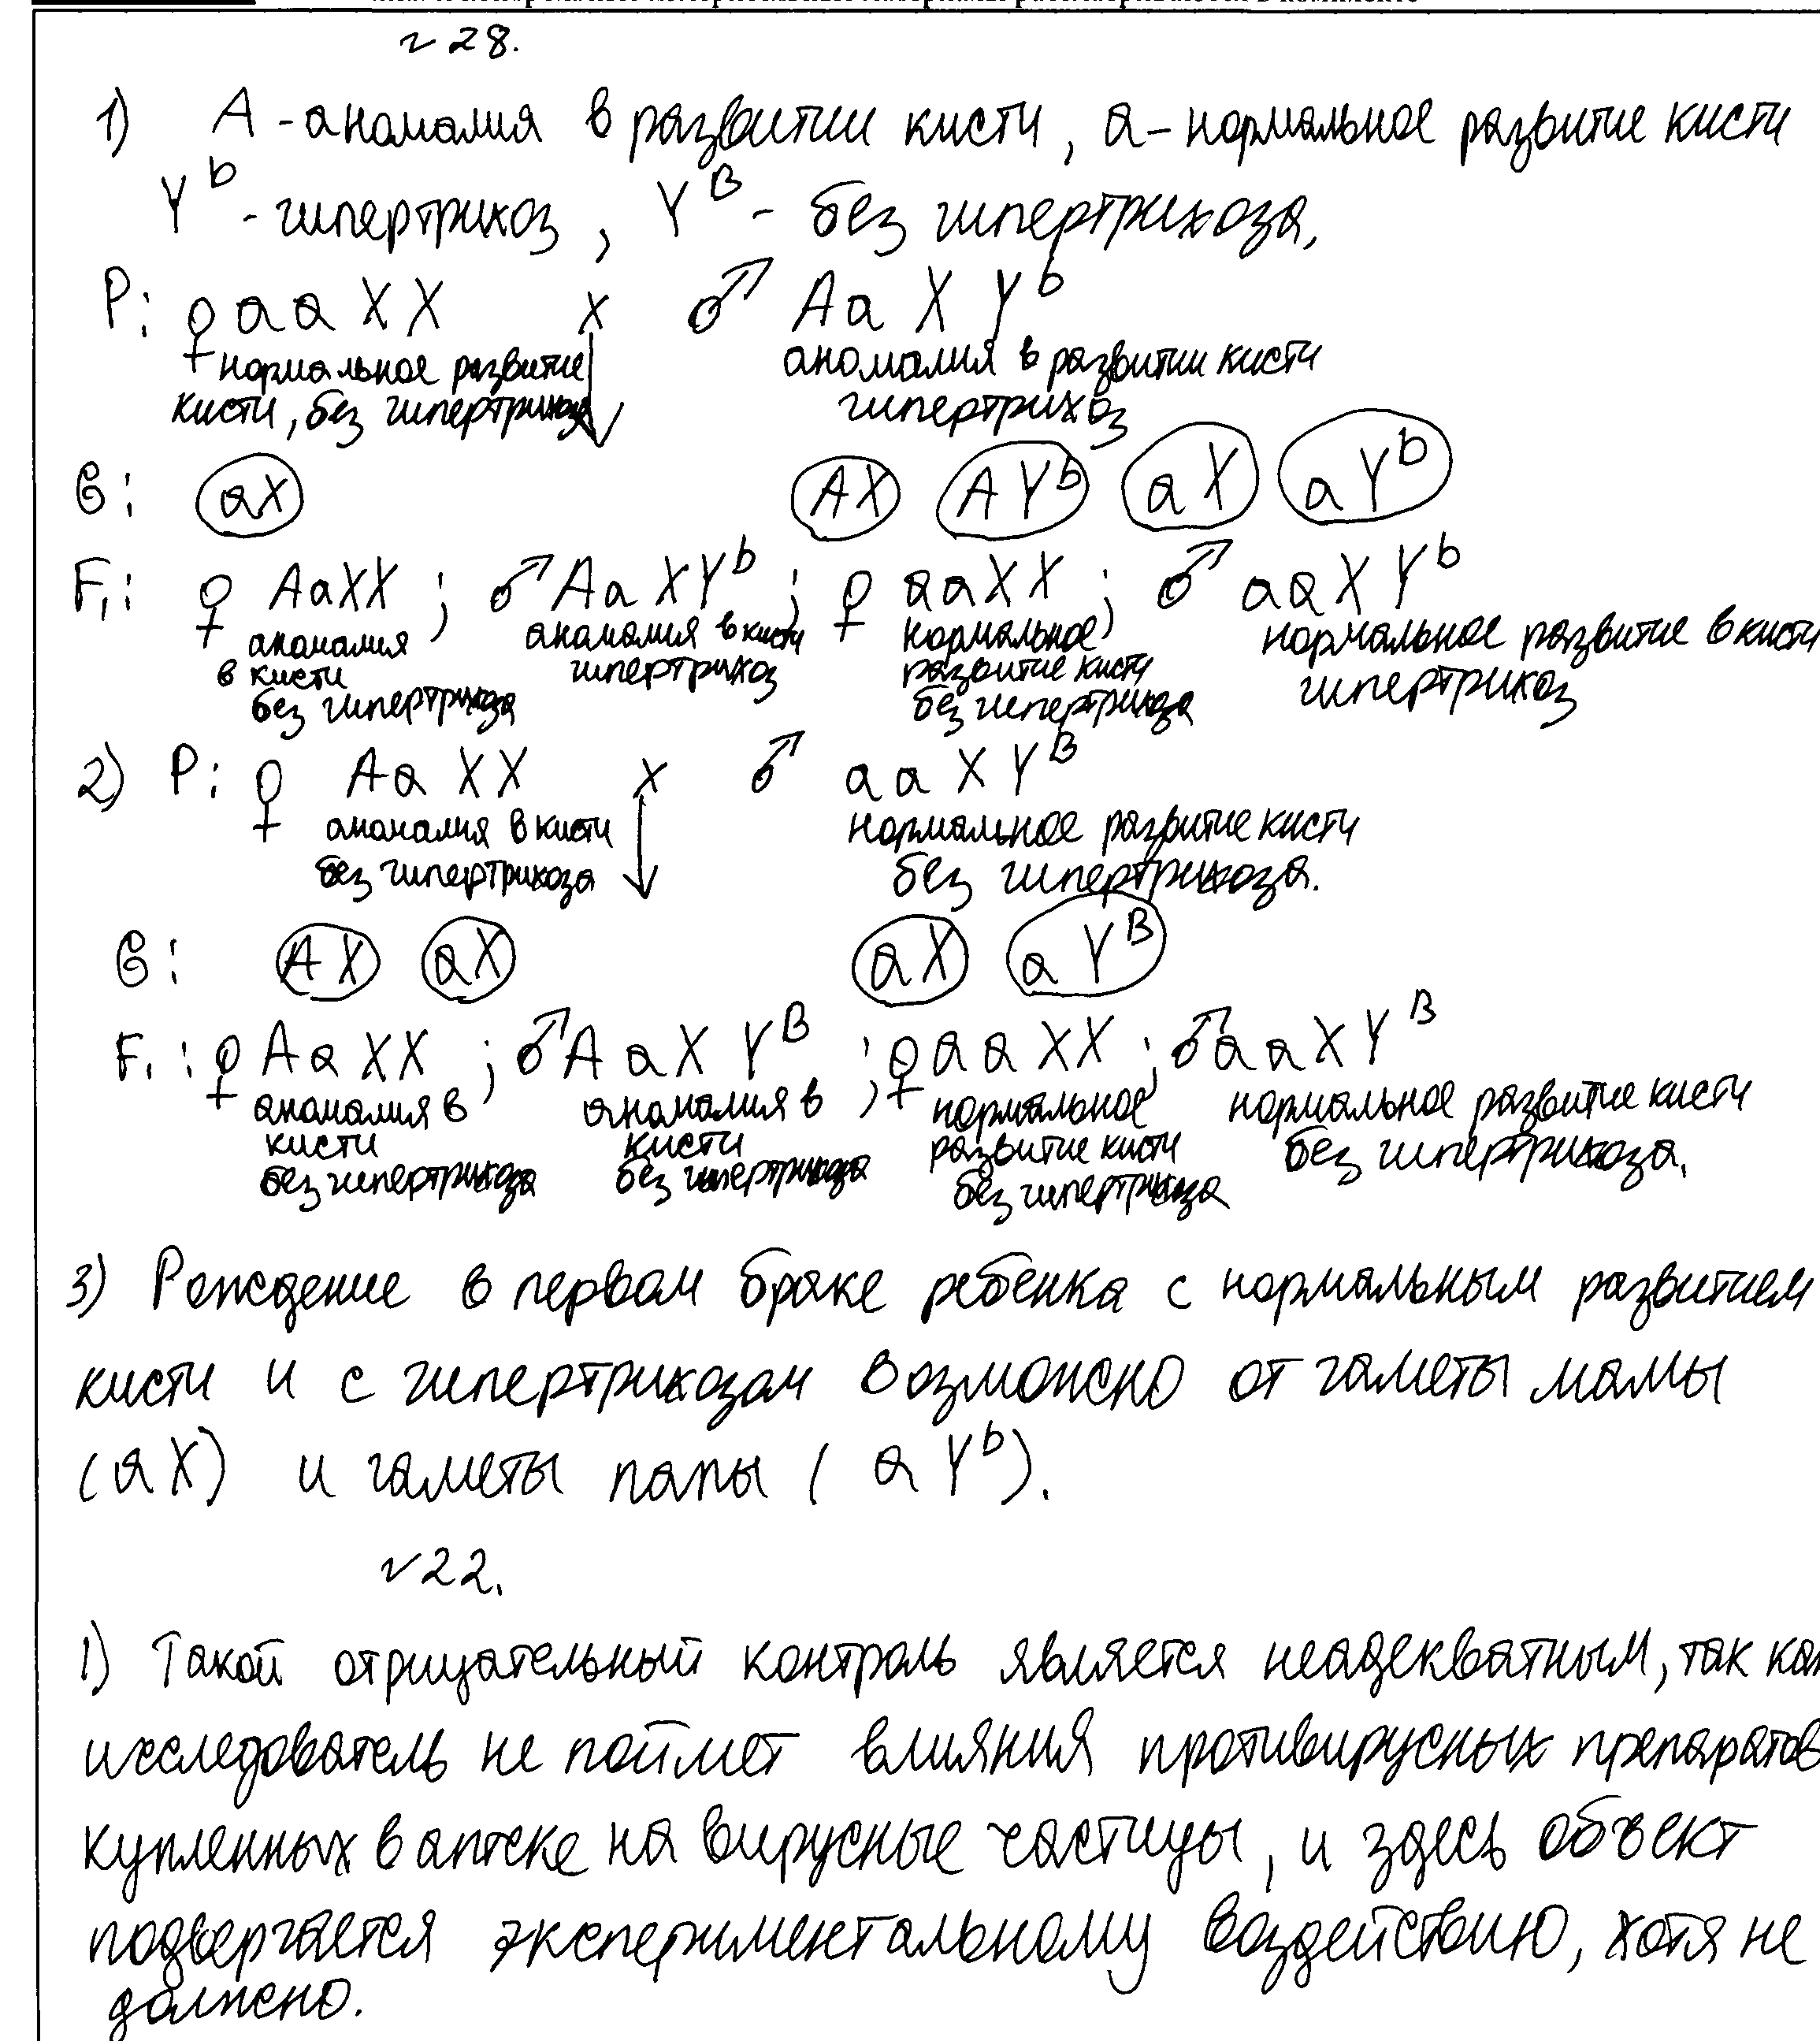 № 28.
1) А - аномалия в развитии кисти, а - нормальное развитие кисти
Y^b - гипертрихоз, Y^B - без гипертрихоза,
P: ♀ aa XX x ♂ Aa X Y^b
нормальное развитие кисти, без гипертрихоза
аномалия в развитии кисти гипертрихоз
G: aX AX AY^b aX aY^b
F₁: ♀ AaXX ; ♂ Aa XY^b ; ♀ aaXX ; ♂ aaXY^b
аномалия в кисти без гипертрихоза
аномалия в кисти гипертрихоз
нормальное развитие кисти без гипертрихоза
нормальное развитие в кисти гипертрихоз
2) P: ♀ Aa XX x ♂ aa X Y^B
аномалия в кисти без гипертрихоза
нормальное развитие кисти без гипертрихоза.
G: AX aX aX aY^B
F₁: ♀ Aa XX ; ♂ AaX Y^B ; ♀ aa XX ; ♂ aaXY^B
аномалия в кисти без гипертрихоза
аномалия в кисти без гипертрихоза
нормальное развитие кисти без гипертрихоза
нормальное развитие кисти без гипертрихоза.
3) Рождение в первом браке ребенка с нормальным развитием
кисти и с гипертрихозом возможно от гаметы мамы
(aX) и гаметы папы (aY^b).
№ 22.
1) Такой отрицательный контроль является неадекватным, так как
исследователь не поймет влияния противирусных препаратов
купленных в аптеке на вирусные частицы, и здесь объект
подвергается экспериментальному воздействию, хотя не
должно.